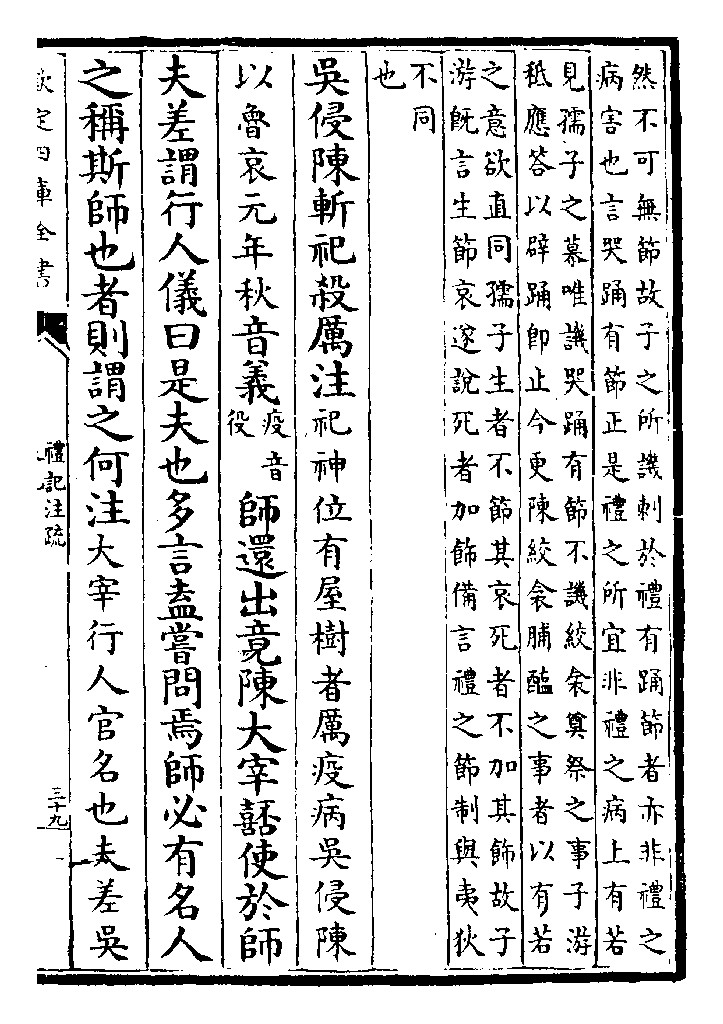 然不可無節故子之所譏刺於禮有踊節者亦非禮之
病害也言哭踊有節正是禮之所宜非禮之病上有若
見孺子之慕唯譏哭踊有節不譏絞衾奠祭之事子游
秪應答以辟踊即止今更陳絞衾脯醢之事者以有若
之意欲直同孺子生者不節其哀死者不加其飾故子
游旣言生節哀遂說死者加飾備言禮之節制與夷狄
不同
也
吳侵陳斬祀殺厲注祀神位有屋樹者厲疫病吳侵陳
以魯哀元年秋音義疫音
役師還出竟陳大宰嚭使於師
夫差謂行人儀曰是夫也多言盍嘗問焉師必有名人
之稱斯師也者則謂之何注大宰行人官名也夫差吳
欽定四庫全書
禮記注疏
三十九